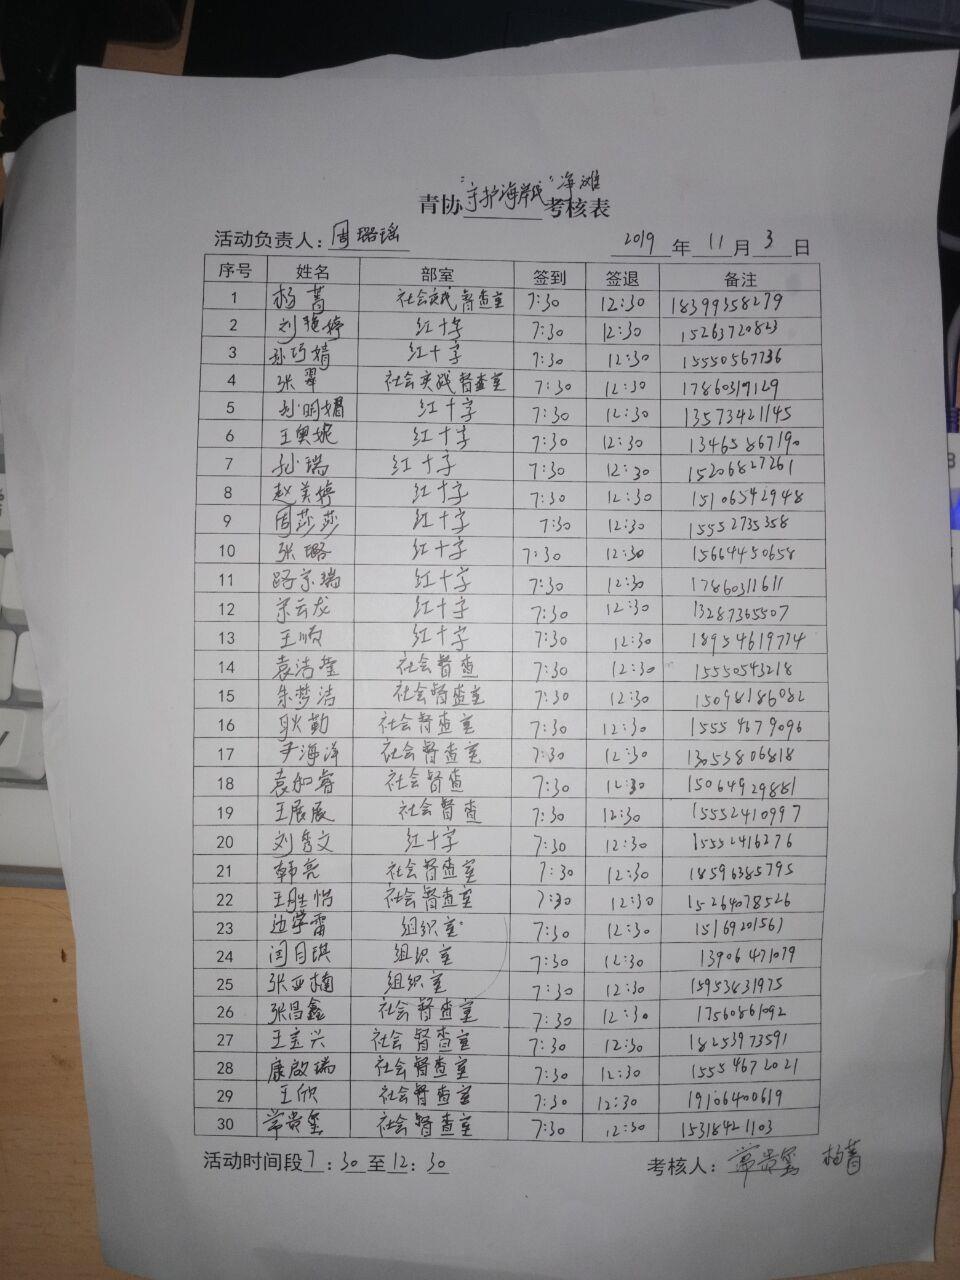 青协"守护海岸线"海滩考核表
活动负责人：周璐瑶 2019年11月3日
序号 姓名 部室 签到 签退 备注
1 杨菁 社会实践督查室 7:30 12:30 18399358279
2 刘艳婷 红十字 7:30 12:30 15263720823
3 孙巧婧 红十字 7:30 12:30 15550567736
4 张翠 社会实践督查室 7:30 12:30 17860319129
5 孙明娟 红十字 7:30 12:30 13573421145
6 王奥妮 红十字 7:30 12:30 13465867190
7 孙瑞 红十字 7:30 12:30 15206827261
8 赵美婷 红十字 7:30 12:30 15106542948
9 周莎莎 红十字 7:30 12:30 15552735358
10 张璐 红十字 7:30 12:30 15664450658
11 路京瑞 红十字 7:30 12:30 17860311611
12 宋云龙 红十字 7:30 12:30 13287365507
13 王顺 红十字 7:30 12:30 18954619774
14 袁洁莹 社会督查 7:30 12:30 15550543218
15 朱梦洁 社会督查室 7:30 12:30 15098186082
16 耿勤 社会督查室 7:30 12:30 15554679096
17 尹海洋 社会督查室 7:30 12:30 13053806818
18 袁如睿 社会督查 7:30 12:30 15064929881
19 王展展 社会督查 7:30 12:30 15552410997
20 刘秀文 红十字 7:30 12:30 15552416276
21 韩亮 社会督查室 7:30 12:30 18596385795
22 王胜怡 社会督查室 7:30 12:30 15264078526
23 边学雷 组织室 7:30 12:30 15169201561
24 闫月琪 组织室 7:30 12:30 13906471079
25 张亚楠 组织室 7:30 12:30 15953431975
26 张昌鑫 社会督查室 7:30 12:30 17560861092
27 王宝兴 社会督查室 7:30 12:30 18253973591
28 康啟瑞 社会督查室 7:30 12:30 15554672021
29 王欣 社会督查室 7:30 12:30 19106400619
30 常贵玺 社会督查室 7:30 12:30 15318421103
活动时间段7:30至12:30 考核人：常贵玺 杨菁